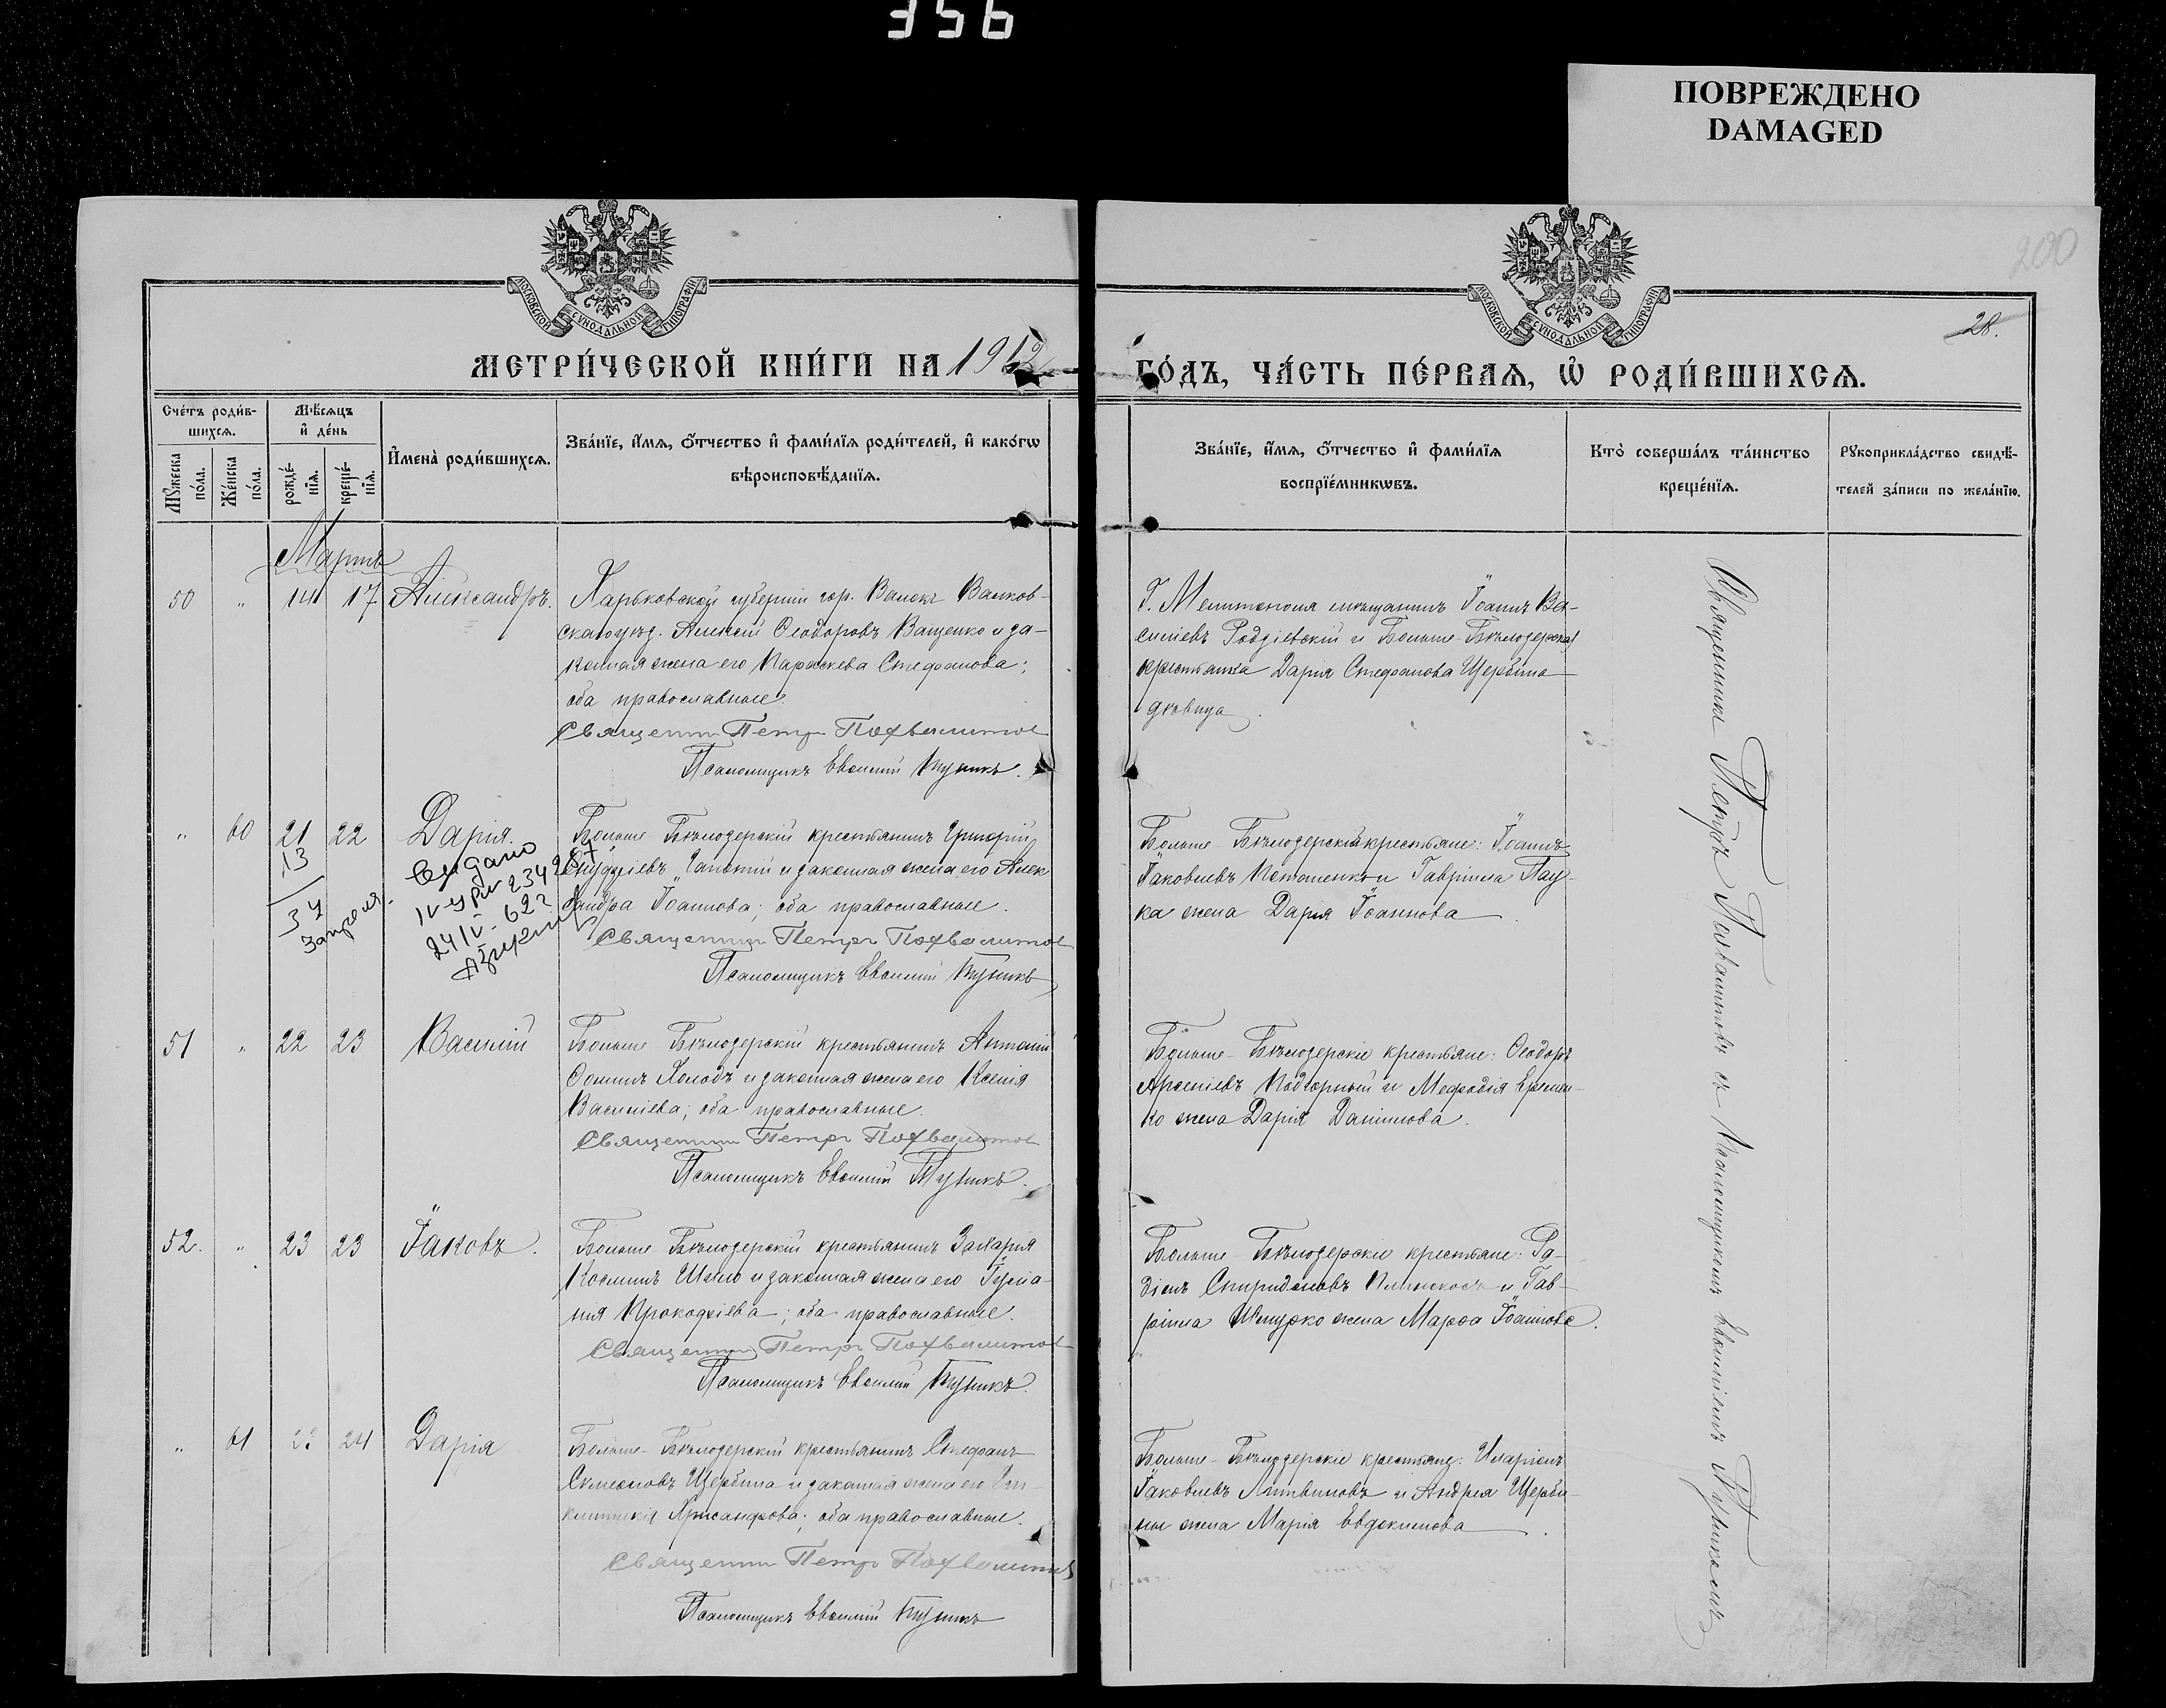 356
ПОВРЕЖДЕНО
DAMAGED
200
28.
МОСКОВСКОЙ СУНОДАЛЬНОЙ ТИПОГРАФІИ
МОСКОВСКОЙ СУНОДАЛЬНОЙ ТИПОГРАФІИ
МЕТРИ́ЧЕСКОЙ КНИ́ГИ НА 1912
ГО́ДЪ, ЧА́СТЬ ПЕ́РВАЯ, Ѡ РОДИ́ВШИХСЯ.
Сче́тъ роди́в-
шихсѧ.
Мꙋ́жеска по́ла.
Же́нска по́ла.
Мѣ́сѧцъ
и҆ де́нь
рожде́-
нїѧ.
креще́-
нїѧ.
И҆мена̀ роди́вшихсѧ.
Зва́нїе, и҆́мѧ, ѻ҆́тчество и҆ фами́лїѧ роди́телей, и҆ како́гѡ
вѣроисповѣ́данїѧ.
Зва́нїе, и҆́мѧ, ѻ҆́тчество и҆ фами́лїѧ
воспрїе́мникѡвъ.
Кто̀ соверша́лъ та́инство
креще́нїѧ.
Рꙋкоприкла́дство свидѣ́-
телей за́писи по жела́нїю.
Мартъ
50 " 14 17 Александръ.
Харьковской губерніи гор. Валокъ Валков-
скаго уѣзд. Алексѣй Ѳеодоровъ Ващенко и за-
конная жена его Параскева Стефанова;
оба православные.
Священник Петръ Похвалитов
Псаломщикъ Евѳимій Пузикъ.
Г. Мелитополя мѣщанинъ Іоаннъ Ва-
силіевъ и Больше-Бѣлозерская
крестьянка Дарія Стефанова Щербина
дѣвица.
" 60 21 22 Дарія.
13
34
Запреля.
Выдано
24 IV- 62 г
Больше Бѣлозерскій крестьянинъ Григорій
и законная жена его Алек
сандра Іоаннова; оба православные.
Священник Петръ Похвалитов
Псаломщикъ Евѳимій Пузикъ
Больше-Бѣлозерскіе крестьяне: Іоаннъ
Іаковлевъ и Гавріила Пау-
ка жена Дарія Іоаннова.
51 " 22 23 Василій
Больше Бѣлозерскій крестьянинъ Антоній
Ѳоминъ Холодъ и законная жена его Ксенія
Василіева; оба православные.
Священник Петръ Похвалитов
Псаломщикъ Евѳимій Пузикъ.
Больше-Бѣлозерскіе крестьяне: Ѳеодоръ
Арсеніевъ Подгорный и Меѳодія Еремен-
ко жена Дарія Даніилова.
52. " 23 23 Іаковъ.
Больше Бѣлозерскій крестьянинъ Захарія
Косминъ Шило и законная жена его Іуліа-
нія Прокофіева; оба православные.
Священник Петръ Похвалитов
Псаломщикъ Евѳимій Пузикъ.
Больше-Бѣлозерскіе крестьяне: Ро-
діонъ Спиридоновъ и Гав-
ріила жена Марѳа Іоаннова.
" 61 23 24 Дарія
Больше-Бѣлозерскій крестьянинъ Стефанъ
Симеоновъ Щербина и законная жена его
Хрисанфова; оба православные.
Священник Петръ Похвалитов
Псаломщикъ Евѳимій Пузикъ
Больше-Бѣлозерскіе крестьяне: Иларіонъ
Іаковлевъ Литвиновъ и Андрея Щерби-
ны жена Марія Евдокимова.
Священникъ Петръ Похвалитовъ съ Псаломщикомъ Евѳиміемъ Пузикомъ